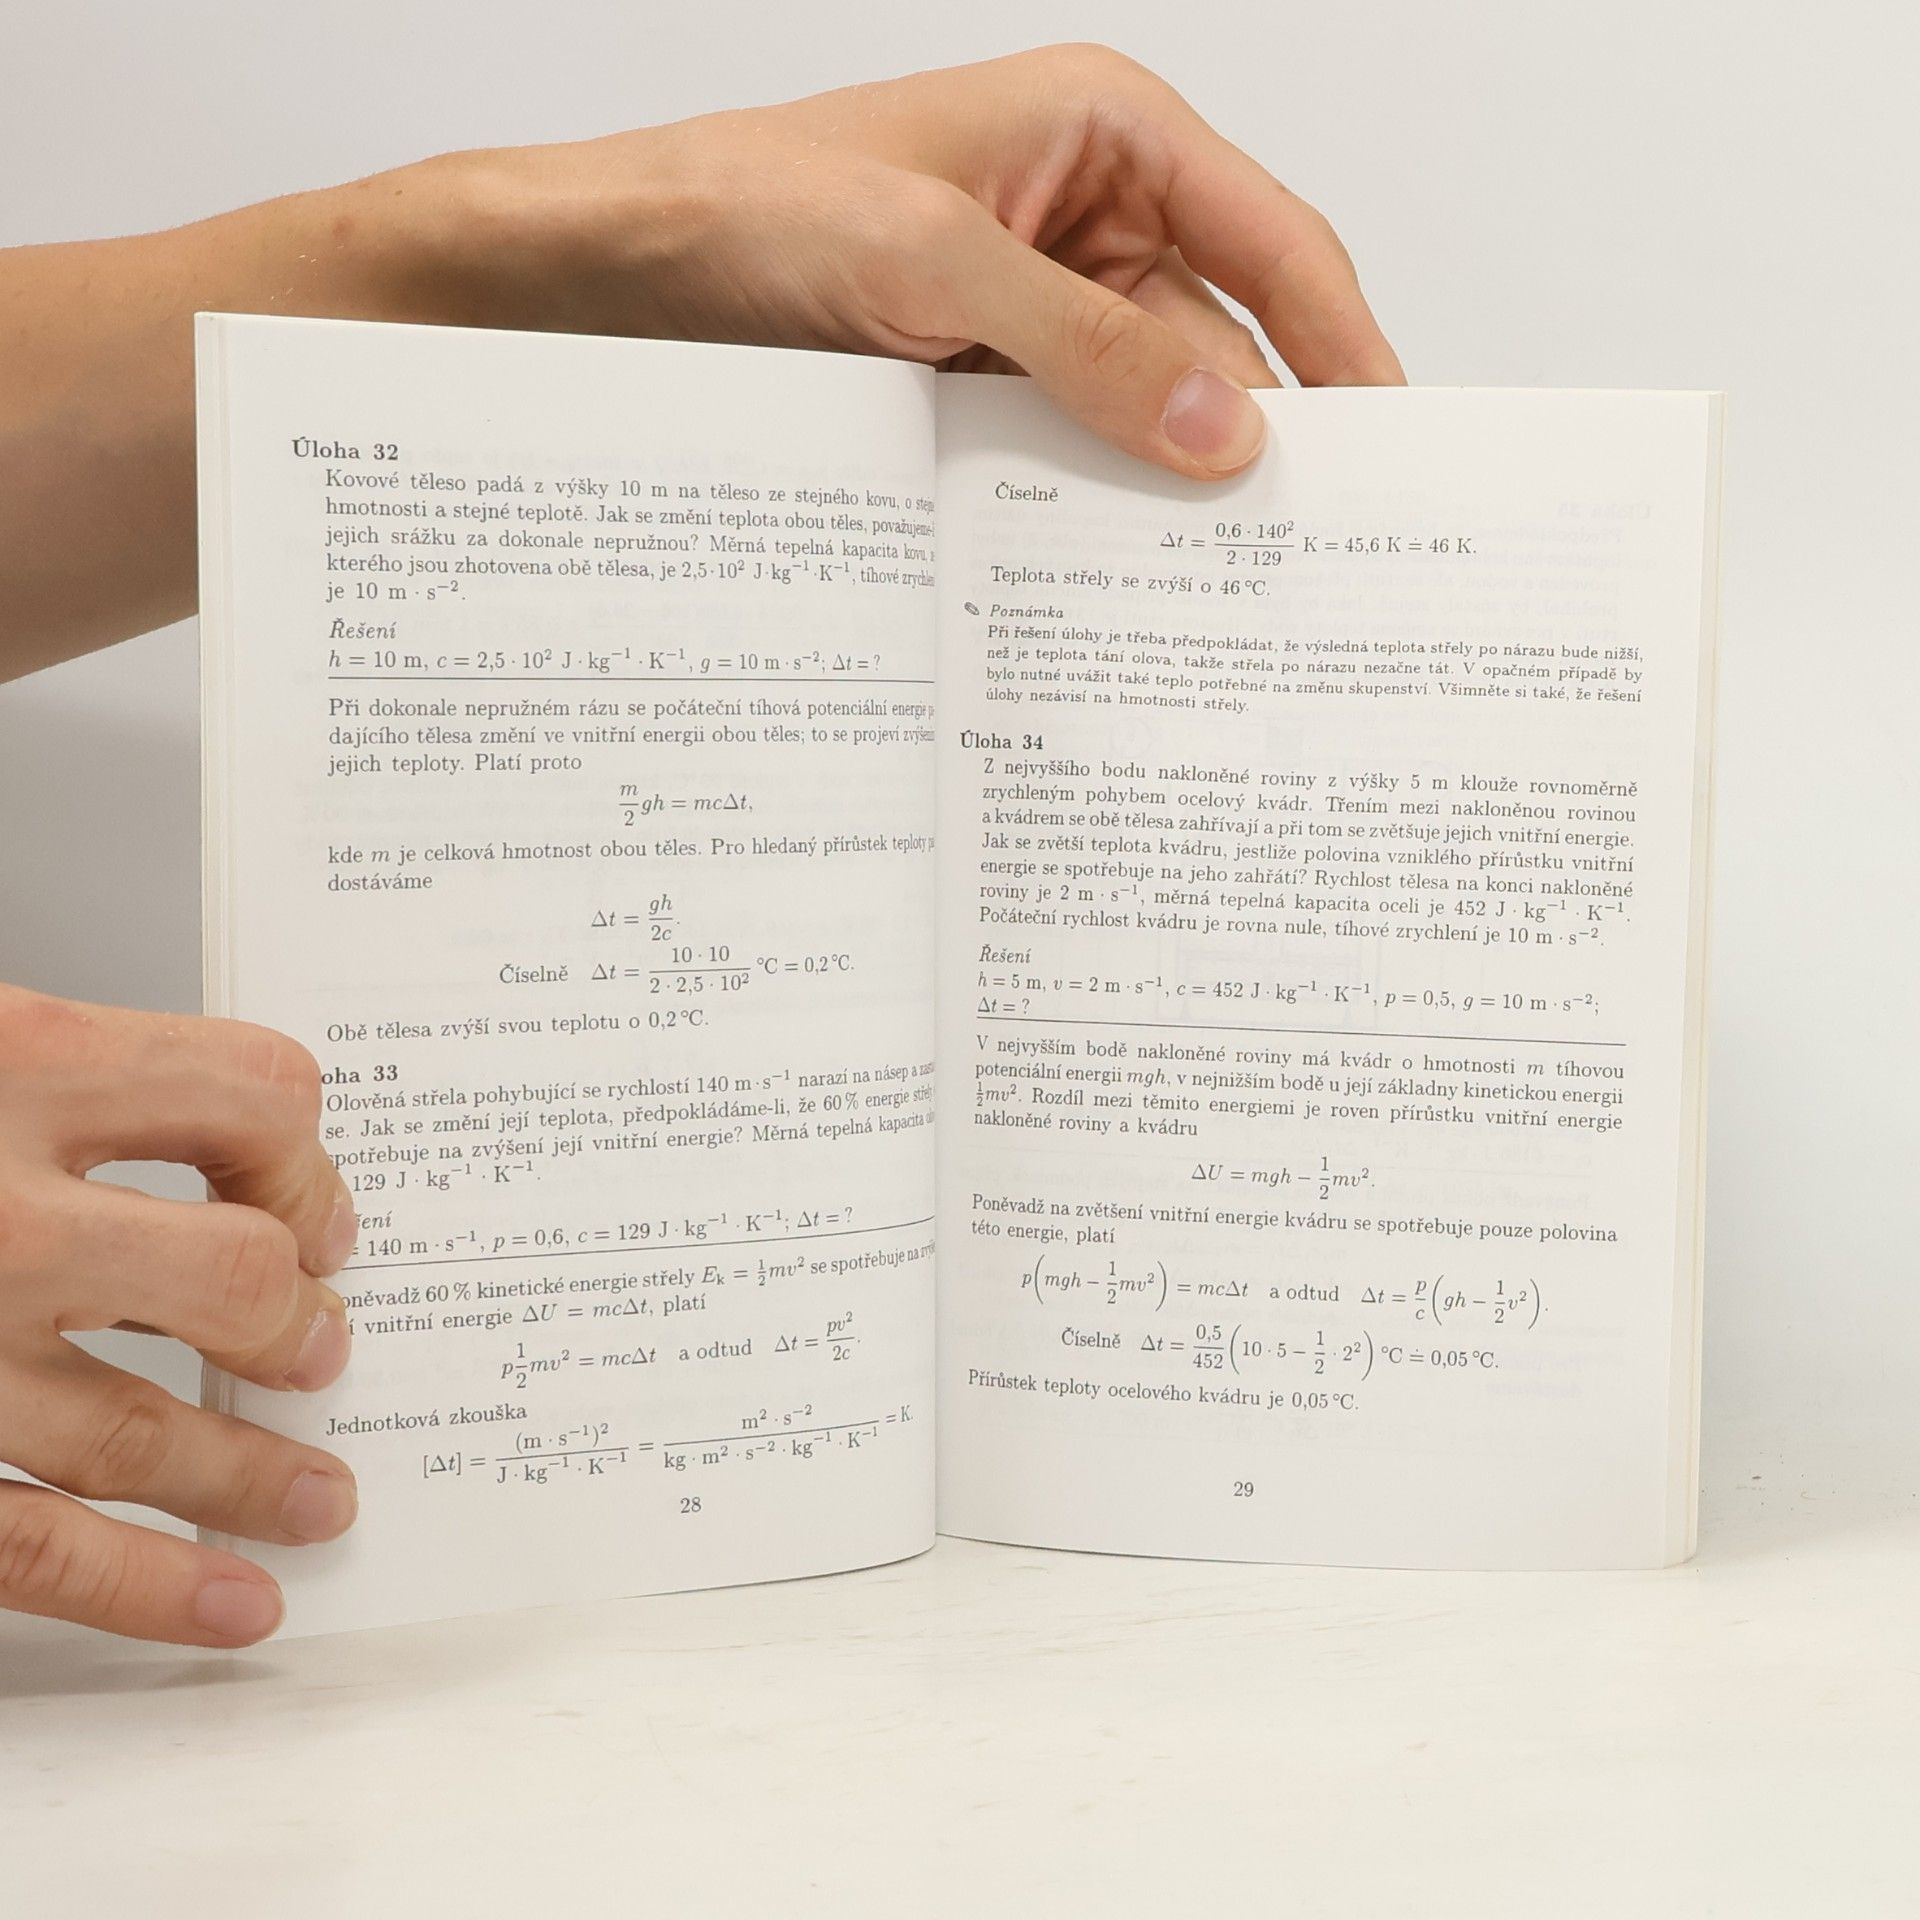 Úloha 32
Kovové těleso padá z výšky 10 m na těleso ze stejného kovu, o
hmotnosti a stejné teplotě. Jak se změní teplota obou těles, považujeme-l
jejich srážku za dokonale nepružnou? Měrná tepelná kapacita kovu,
kterého jsou zhotovena obě tělesa, je 2,5·10² J·kg⁻¹·K⁻¹, tíhové
je 10 m · s⁻².
Řešení
h = 10 m, c = 2,5 · 10² J · kg⁻¹ · K⁻¹, g = 10 m · s⁻²; Δt = ?
Při dokonale nepružném rázu se počáteční tíhová potenciální energie
dajícího tělesa změní ve vnitřní energii obou těles; to se projeví
jejich teploty. Platí proto
m/2 gh = mcΔt,
kde m je celková hmotnost obou těles. Pro hledaný přírůstek teploty
dostáváme
Δt = gh/2c.
Číselně Δt = 10 · 10/2 · 2,5 · 10² °C = 0,2 °C.
Obě tělesa zvýší svou teplotu o 0,2 °C.
oha 33
Olověná střela pohybující se rychlostí 140 m · s⁻¹ narazí na násep a
se. Jak se změní její teplota, předpokládáme-li, že 60 % energie
spotřebuje na zvýšení její vnitřní energie? Měrná tepelná kapacita
129 J · kg⁻¹ · K⁻¹.
šení
= 140 m · s⁻¹, p = 0,6, c = 129 J · kg⁻¹ · K⁻¹; Δt = ?
oněvadž 60 % kinetické energie střely Eₖ = ½mv² se spotřebuje na
í vnitřní energie ΔU = mcΔt, platí
p 1/2 mv² = mcΔt a odtud Δt = pv²/2c.
Jednotková zkouška
[Δt] = (m · s⁻¹)²/J · kg⁻¹ · K⁻¹ = m² · s⁻²/kg · m² · s⁻² · kg⁻¹ · K⁻¹ = K.
28
Číselně
Δt = 0,6 · 140²/2 · 129 K = 45,6 K ≐ 46 K.
Teplota střely se zvýší o 46 °C.
✎ Poznámka
Při řešení úlohy je třeba předpokládat, že výsledná teplota střely po nárazu bude nižší,
než je teplota tání olova, takže střela po nárazu nezačne tát. V opačném případě by
bylo nutné uvážit také teplo potřebné na změnu skupenství. Všimněte si také, že řešení
úlohy nezávisí na hmotnosti střely.
Úloha 34
Z nejvyššího bodu nakloněné roviny z výšky 5 m klouže rovnoměrně
zrychleným pohybem ocelový kvádr. Třením mezi nakloněnou rovinou
a kvádrem se obě tělesa zahřívají a při tom se zvětšuje jejich vnitřní energie.
Jak se zvětší teplota kvádru, jestliže polovina vzniklého přírůstku vnitřní
energie se spotřebuje na jeho zahřátí? Rychlost tělesa na konci nakloněné
roviny je 2 m · s⁻¹, měrná tepelná kapacita oceli je 452 J · kg⁻¹ · K⁻¹.
Počáteční rychlost kvádru je rovna nule, tíhové zrychlení je 10 m · s⁻².
Řešení
h = 5 m, v = 2 m · s⁻¹, c = 452 J · kg⁻¹ · K⁻¹, p = 0,5, g = 10 m · s⁻²;
Δt = ?
V nejvyšším bodě nakloněné roviny má kvádr o hmotnosti m tíhovou
potenciální energii mgh, v nejnižším bodě u její základny kinetickou energii
½mv². Rozdíl mezi těmito energiemi je roven přírůstku vnitřní energie
nakloněné roviny a kvádru
ΔU = mgh − 1/2 mv².
Poněvadž na zvětšení vnitřní energie kvádru se spotřebuje pouze polovina
této energie, platí
p(mgh − 1/2 mv²) = mcΔt a odtud Δt = p/c (gh − 1/2 v²).
Číselně Δt = 0,5/452 (10 · 5 − 1/2 · 2²) °C ≐ 0,05 °C.
Přírůstek teploty ocelového kvádru je 0,05 °C.
29